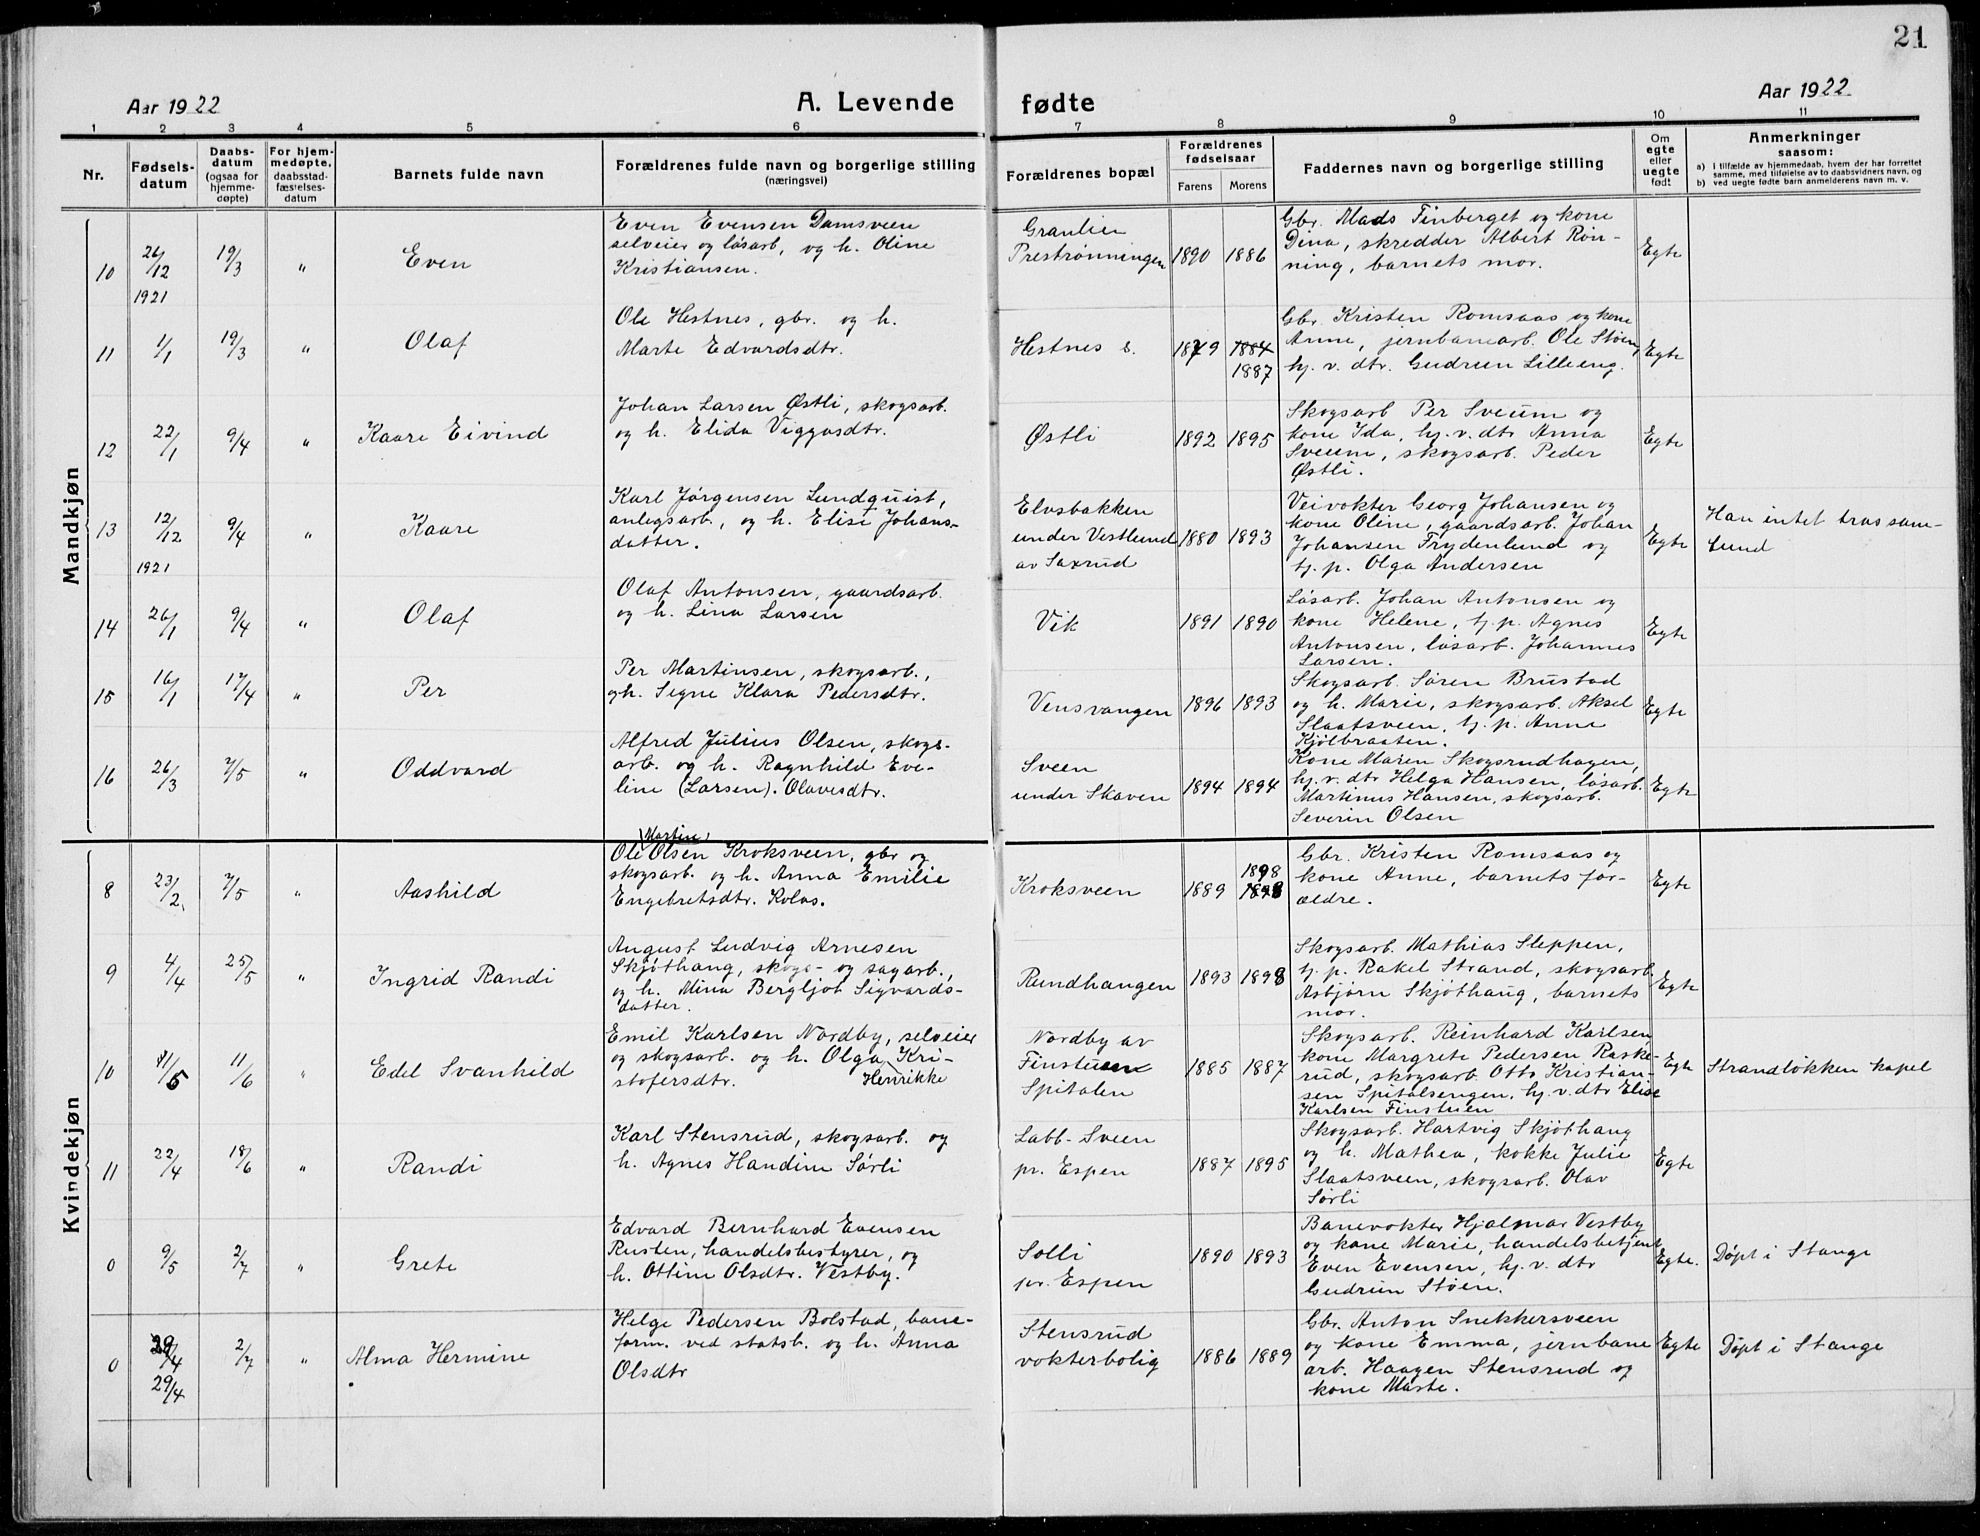 21
Aar 1922
A. Levende fødte
Aar 1922
1 2 3 4 5 6 7 8 9 10 11
Nr.
Fødsels-
datum
Daabs-
datum
(ogsaa for
hjemme-
døpte)
For hjem-
medøpte,
daabsstad-
fæstelses-
datum
Barnets fulde navn
Forældrenes fulde navn og borgerlige stilling
(næringsvei)
Forældrenes bopæl
Forældrenes
fødselsaar
Farens
Morens
Faddernes navn og borgerlige stilling
Om
egte
eller
uegte
født
Anmerkninger
saasom:
a) I tilfælde av hjemmedaab, hvem der har forrettet
samme, med tilføielse av to daabsvidners navn, og
b) ved uegte fødte barn anmelderens navn m. v.
Mandkjøn
10 26/12 1921 19/3 " Even
Even Evensen Damsveen
selveier og løsarb, og h. Oline
Kristiansen.
Granlien
Prestrønningen
1890 1886
Gbr. Mads Finberget og kone
Dina, skredder Albert Røn-
ning, barnets mor.
Egte
11 1/1 19/3 " Olaf
Ole Hestnes, gbr. og h.
Marte Edvardsdtr.
Hestnes s.
1879 1884
1887
Gbr. Kristen Romsaas og kone
Anne, jernbanearb. Ole Støen,
hj. v. dtr. Gudrun Lilleeng.
Egte
12 22/1 9/4 " Kaare Eivind
Johan Larsen Østli, skogsarb.
og h. Elida Viggosdtr.
Østli
1892 1895
Skogsarb Per Sveum og
kone Ida, hj. v. dtr Anna
Sveum, skogsarb. Peder
Østli.
Egte
13 12/12 1921 9/4 " Kaare
Karl Jørgensen Lundquist,
anlegsarb., og h. Elise Johans-
datter.
Elvsbakken
under Vestlund
av Saxrud
1880 1893
Veivokter Georg Johansen og
kone Oline, gaardsarb. Johan
Johansen Frydenlund og
tj. p. Olga Andersen
Egte
Han intet tros sam-
fund
14 26/1 9/4 " Olaf
Olaf Antonsen, gaardsarb.
og h. Lina Larsen
Vik
1891 1890
Løsarb. Johan Antonsen og
kone Helene, tj. p. Agnes
Antonsen, løsarb. Johannes
Larsen.
Egte
15 16/1 17/4 " Per
Per Martinsen, skogsarb.,
gh. Signe Klara Pedersdtr.
Vensvangen
1896 1893
Skogsarb. Søren Brustad
og h. Marie, skogsarb. Aksel
Slaatsveen, tj. p. Anne
Kjølbraaten.
Egte
16 26/3 7/5 " Oddvard
Alfred Julius Olsen, skogs-
arb. og h. Ragnhild Eve-
line (Larsen). Olavesdtr.
Sveen
under Skaven
1894 1894
Kone Maren Skogsrudhagen,
hj. v. dtr Helga Hansen, løsarb.
Martinus Hansen, skogsarb.
Severin Olsen
Egte
Kvindekjøn
8 23/2 7/5 " Aashild
Martin
Ole Olsen Kroksveen, gbr og
skogsarb. og h. Anna Emilie
Engebretsdtr. Kolas.
Kroksveen
1889 1898
Gbr. Kristen Romsaas og
kone Anne, barnets for-
ældre.
Egte
9 4/4 25/5 " Ingrid Randi
August Ludvig Arnesen
Skjøthaug, skogs- og sagarb.,
og h. Mina Bergljot Sigvards-
datter.
Rundhaugen
1893 1898
Skogsarb. Mathias Sleppen,
tj. p. Rakel Strand, skogsarb
Asbjørn Skjøthaug, barnets
mor.
Egte
10 11/5 11/6 " Edel Svanhild
Emil Karlsen Nordby, selveier
og skogsarb. og h. Olga Kri-
stofersdtr. Henrikke
Nordby av
Finstuen
Spitalen
1885 1887
Skogsarb. Reinhard Karlsen,
kone Margrete Pedersen Raske-
rud, skogsarb. Otto Kristian-
sen Spitalsengen, hj. v. dtr Elise
Karlsen Finstuen
Egte
Strandløkken kapel
11 22/4 18/6 " Randi
Karl Stensrud, skogsarb. og
h. Agnes Handine Sørli
Labb-Sveen
pr. Espen
1887 1895
Skogsarb. Hartvig Skjøthaug
og h. Mathea, kokke Julie
Slaatsveen, skogsarb. Olav
Sørli
Egte
0 9/5 2/7 " Grete
Edvard Bernhard Evensen
Rusten, handelsbestyrer, og
h. Ottine Olsdtr. Vestby.
Solli
pr. Espen
1890 1893
Banevokter Hjalmar Vestby
og kone Marie, handelsbetjent
Even Evensen, hj. v. dtr
Gudrun Støen.
Egte.
Døpt i Stange
0 29/4 29/4 2/7 " Alma Hermine
Helge Pedersen Bolstad, bane-
form. ved statsb. og h. Anna
Olsdtr
Stensrud
vokterbolig
1886 1889
Gbr. Anton Snekkersveen
og kone Emma, jernbane
arb. Haagen Stensrud og
kone Marte.
Egte
Døpt i Stange